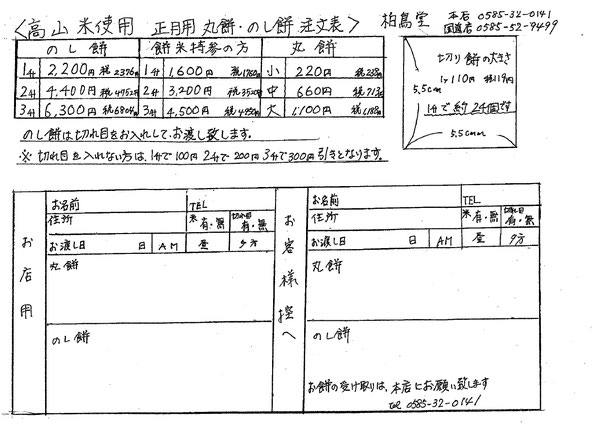 〈高山米使用 正月用 丸餅・のし餅 注文表〉
柏鳥堂
本店 0585-32-0141
国道店 0585-52-9499
のし餅 餅米持参の方 丸餅
1升 2,200円 税2376円 1升 1,600円 税1760円 小 220円 税238円
2升 4,400円 税4752円 2升 3,200円 税3520円 中 660円 税713円
3升 6,300円 税6804円 3升 4,500円 税4950円 大 1,100円 税1,188円
切り餅の大きさ
1ヶ110円 税119円
5.5cm
1升で約24個です
5.5cm
のし餅は切れ目をお入れして、お渡し致します。
※ 切れ目を入れない方は、1升で100円 2升で200円 3升で300円引きとなります。
お店用
お名前 TEL
住所 米 有・無 切れ目 有・無
お渡し日 日 AM 昼 夕方
丸餅
のし餅
お客様控へ
お名前 TEL
住所 米 有・無 切れ目 有・無
お渡し日 日 AM 昼 夕方
丸餅
のし餅
お餅の受け取りは、本店にお願い致します
tel 0585-32-0141